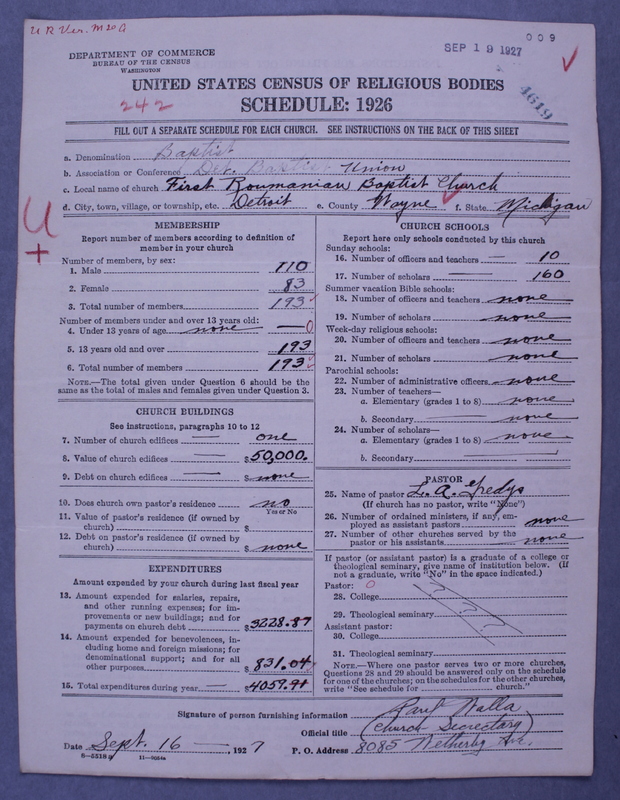 U R Ver. M20 A
009
SEP 19 1927
DEPARTMENT OF COMMERCE
BUREAU OF THE CENSUS
WASHINGTON
4619
UNITED STATES CENSUS OF RELIGIOUS BODIES
242
SCHEDULE: 1926
FILL OUT A SEPARATE SCHEDULE FOR EACH CHURCH. SEE INSTRUCTIONS ON THE BACK OF THIS SHEET
a. Denomination Baptist
b. Association or Conference Det. Baptist Union
c. Local name of church First Roumanian Baptist Church
d. City, town, village, or township, etc. Detroit e. County Wayne f. State Michigan
U
+
MEMBERSHIP
Report number of members according to definition of
member in your church
Number of members, by sex:
1. Male 110
2. Female 83
3. Total number of members 193
Number of members under and over 13 years old:
4. Under 13 years of age none — 0
5. 13 years old and over 193
6. Total number of members 193
NOTE.—The total given under Question 6 should be the
same as the total of males and females given under Question 3.
CHURCH BUILDINGS
See instructions, paragraphs 10 to 12
7. Number of church edifices — one
8. Value of church edifices — $50,000.
9. Debt on church edifices — $none
10. Does church own pastor's residence no
Yes or No
11. Value of pastor's residence (if owned by
church) $
12. Debt on pastor's residence (if owned by
church) $ none
EXPENDITURES
Amount expended by your church during last fiscal year
13. Amount expended for salaries, repairs,
and other running expenses; for im-
provements or new buildings; and for
payments on church debt $3228.87
14. Amount expended for benevolences, in-
cluding home and foreign missions; for
denominational support; and for all
other purposes $831.04
15. Total expenditures during year $4059.91
CHURCH SCHOOLS
Report here only schools conducted by this church
Sunday schools:
16. Number of officers and teachers — 10
17. Number of scholars — 160
Summer vacation Bible schools:
18. Number of officers and teachers none
19. Number of scholars none
Week-day religious schools:
20. Number of officers and teachers none
21. Number of scholars none
Parochial schools:
22. Number of administrative officers none
23. Number of teachers—
a. Elementary (grades 1 to 8) none
b. Secondary none
24. Number of scholars—
a. Elementary (grades 1 to 8) none
b. Secondary
PASTOR
25. Name of pastor L. A. Gredys
(If church has no pastor, write "None")
26. Number of ordained ministers, if any, em-
ployed as assistant pastors none
27. Number of other churches served by the
pastor or his assistants none
If pastor (or assistant pastor) is a graduate of a college or
theological seminary, give name of institution below. (If
not a graduate, write "No" in the space indicated.)
Pastor: 0
28. College
29. Theological seminary
? ? ?
Assistant pastor:
30. College
31. Theological seminary
NOTE.—Where one pastor serves two or more churches,
Questions 28 and 29 should be answered only on the schedule
for one of the churches; on the schedules for the other churches,
write "See schedule for church."
Signature of person furnishing information Paul Walla
Official title (Church Secretary)
Date Sept. 16 — 1927 P. O. Address 8085 Wetherby Ave.
8—5518 a 11—9684a